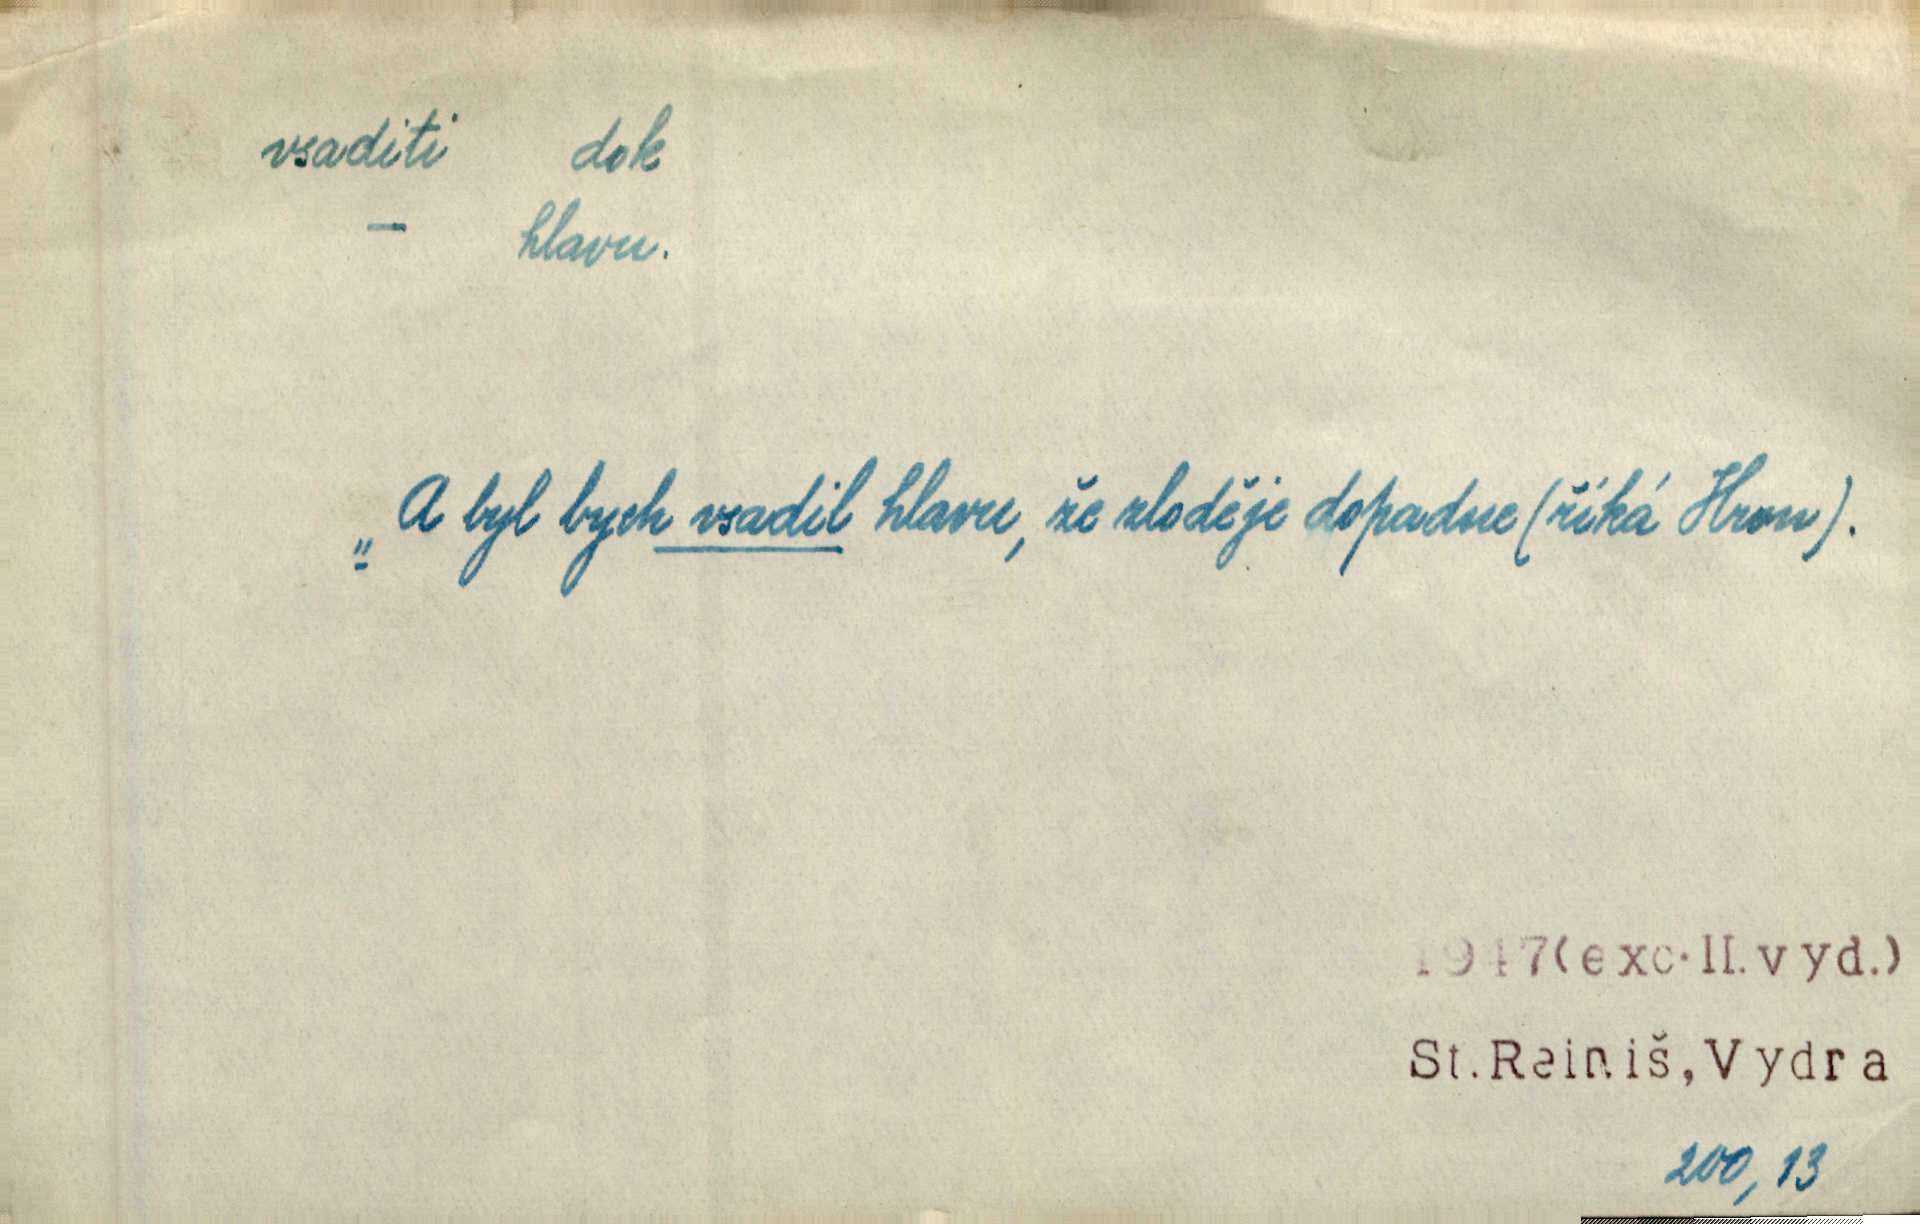 vsaditi dok
— hlavu.
„A byl bych vsadil hlavu, že zloděje dopadne (říká Hron).
1947(exc.II.vyd.)
St.Reiniš,Vydra
200,13